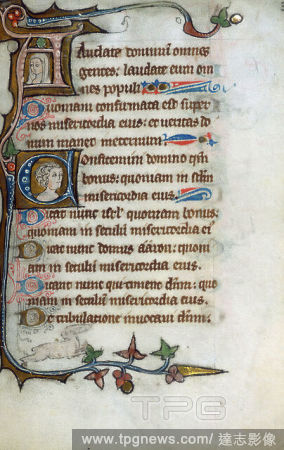 Laudate dominum omnes
gentes: laudate eum om
nes populi
Quoniam confirmata est super
nos misericordia eius: et veritas do
mini manet in eternum
Confitemini domino qm
bonus: quoniam in sclm
misericordia eius.
Dicat nunc isrl quoniam bonus:
quoniam in sclm misericordia eius.
Dicat nunc domus aaron: quoni
am in sclm misericordia eius.
Dicant nunc qui timent dnm: quo
niam in sclm misericordia eius.
De tribulatione invocavi dnm:
TPG
www.tpgnews.com/達志影像